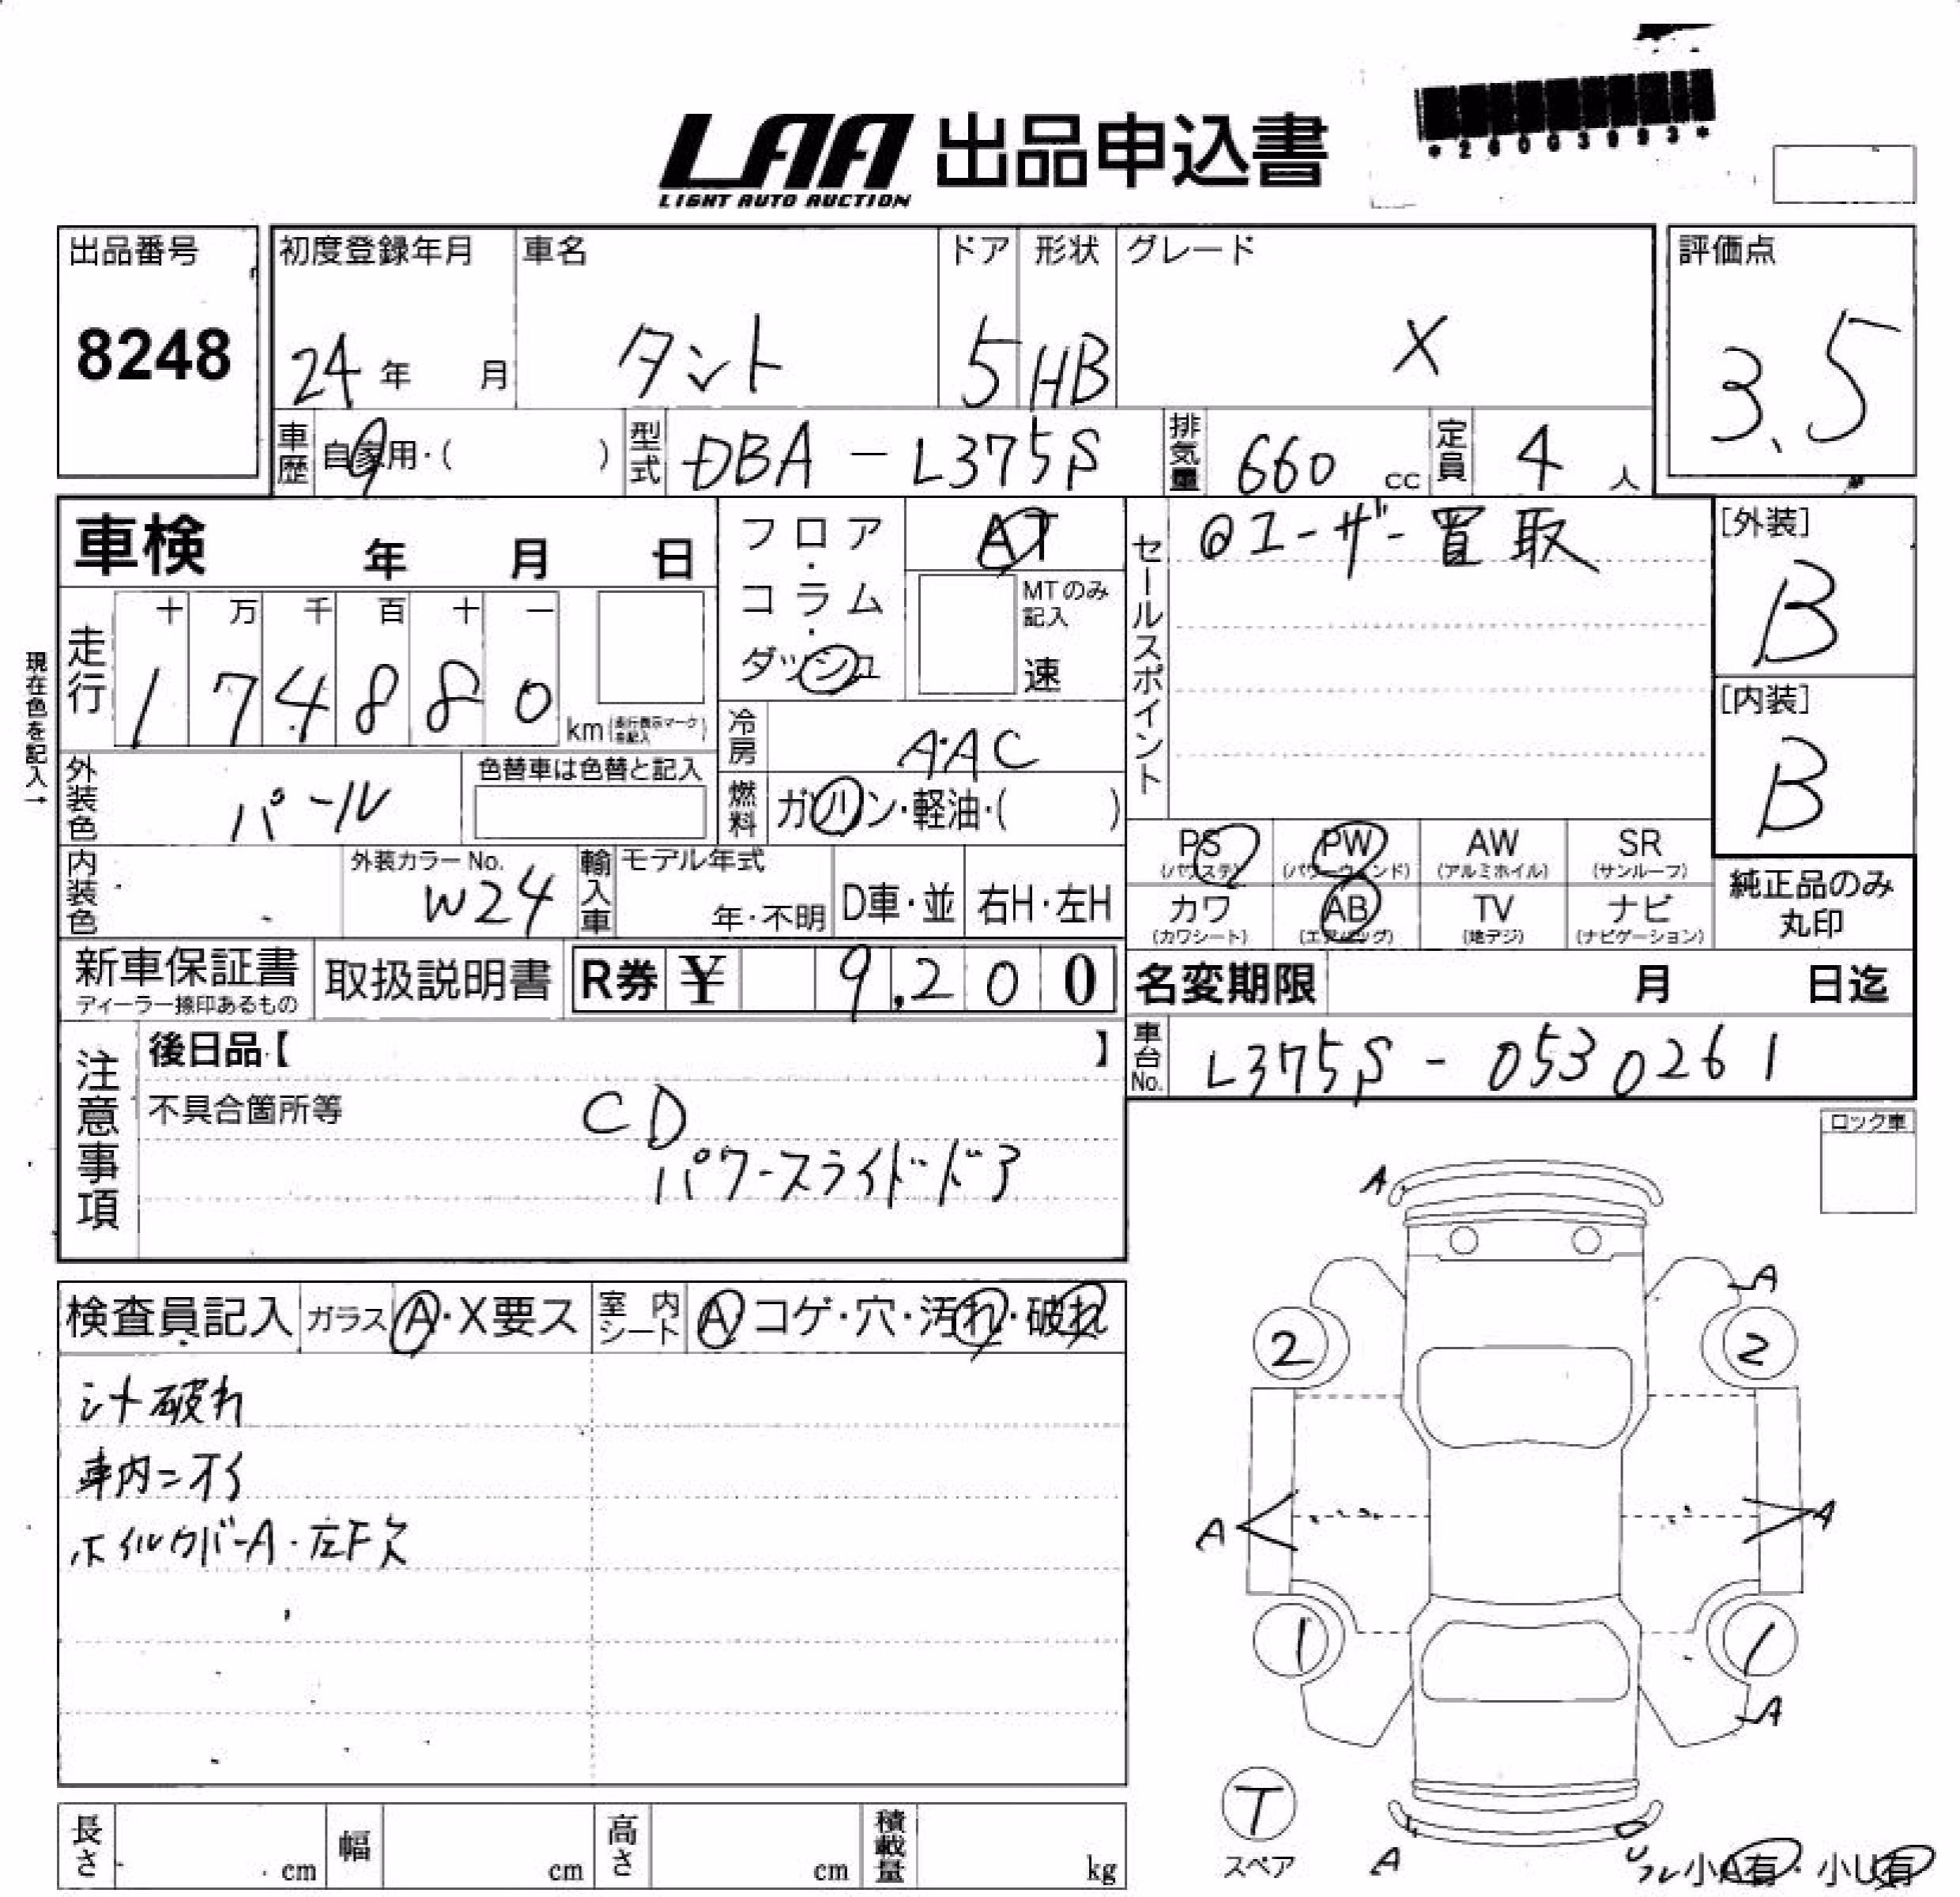 LAA 出品申込書
LIGHT AUTO AUCTION
出品番号
8248
初度登録年月
24年 月
車名
タント
ドア
5
形状
HB
グレード
X
評価点
3.5
車歴 自家用・( )
型式 DBA-L375S
排気量 660 cc
定員 4 人
車検 年 月 日
現在色を記入→
走行
十 万 千 百 十 一
1 7 4 8 8 0 km
フロア・コラム・ダッシュ
AT
MTのみ記入
速
冷房 A・AC
燃料 ガソリン・軽油・( )
外装色 パール
色替車は色替と記入
内装色
外装カラーNo.
W24
輸入車
モデル年式
年・不明
D車・並
右H・左H
セールスポイント
@ユーザー買取
[外装]
B
[内装]
B
PS
(パワステ)
PW
(パワーウィンド)
AW
(アルミホイル)
SR
(サンルーフ)
カワ
(カワシート)
AB
(エアバッグ)
TV
(地デジ)
ナビ
(ナビゲーション)
純正品のみ
丸印
新車保証書
ディーラー捺印あるもの
取扱説明書
R券 ¥ 9,200
名変期限 月 日迄
車台No. L375S-0530261
注意事項
後日品【 】
不具合箇所等
CD
パワースライドドア
ロック車
検査員記入
ガラス A・X要ス
室内シート A コゲ・穴・汚れ・破れ
シート破れ
車内ニオイ
ホイルカバーA・左F欠
A
A
2
2
A
A
1
1
A
T
スペア
A
小A有・小U有
長さ cm
幅 cm
高さ cm
積載量 kg